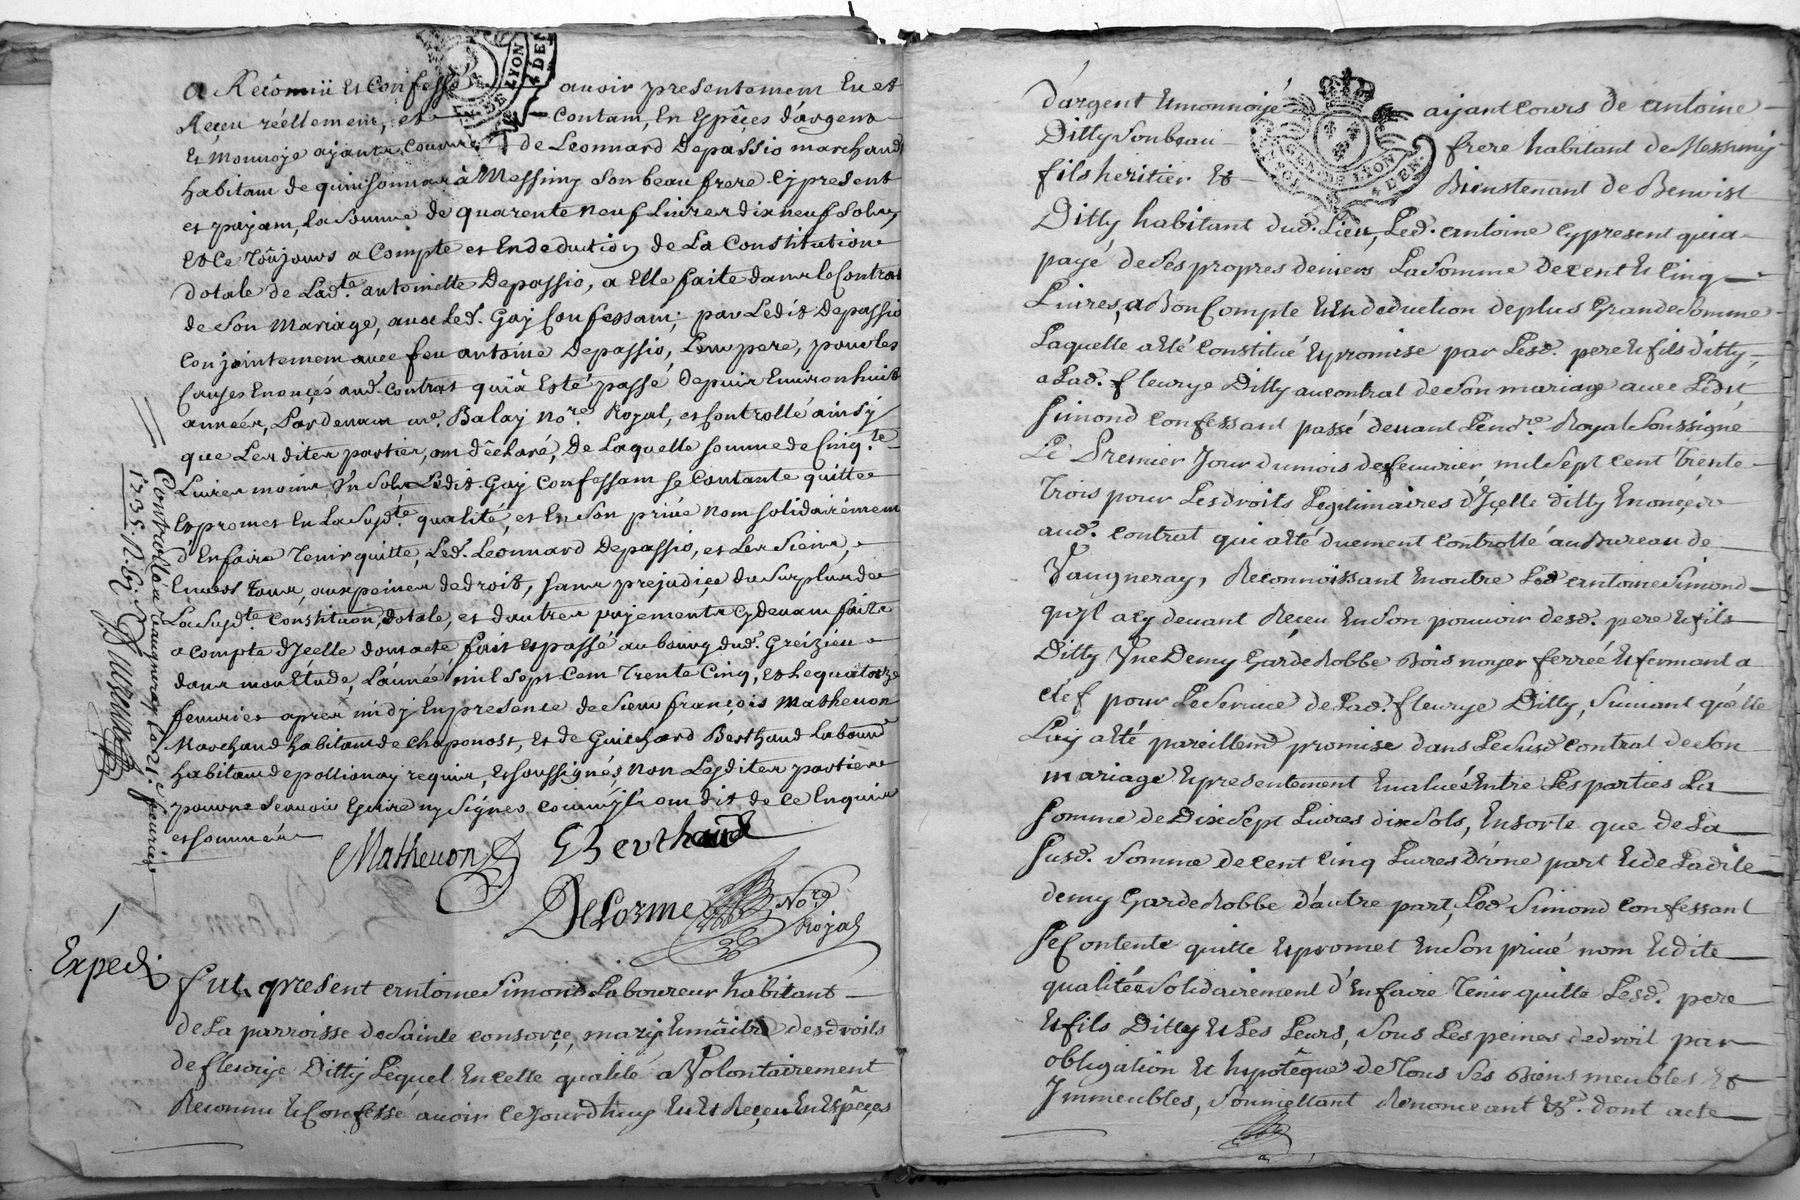 a Reconnu et confessé avoir presentement Eu et
Reçeu réellement, et contant, En Espêces d'argent
et Monnoye ayant couurs de Leonnard Depassio marchand
habitant de quinsonnat à Messimy son beau frere cy present
et payant, la Somme de quarente neuf Liures dix neuf Sols,
et ce Toûjours a Compte et En deduction de La Constitution
dotale de Ladte. antoinette Depassio, a Elle faite dans le Contrat
de Son Mariage, auec Led. Gay Confessant; par Ledit Depassio
conjointement auec feu antoine Depassio, Leur pere, pour les
causes Enonçés aud. contrat qui a Esté passé depuis Enuiron huit
années, Pardeuant me. Balay nore. Royal, et controllé ainsy
que Lesdites parties, ont déclaré, De Laquelle somme de Cinqte.
Liures moins Un Sols Ledit. Gay Confessant Se Contante quitte
Et promet En La Susdte. qualité, et En Son priué nom solidairement
d'En faire Tenir quitte, Led. Leonnard Depassio, et Les Siens,
Enuers tous, aux peines de droit, sans prejudiçe du Surplus de
La Susdte. constituon, Dotale, et d'autres payements cy deuant faits
a compte d'Icelle dont acte, fait et passé au bourg dud. Greizieu
dans mon Etude, L'année mil sept Cent Trente Cinq, et Le quatorze
feurier apres midy En presence de Sieur françois Matheuon
Marchand habitant de chaponost, et de Guichard Berthaud Laboureur
habitant de pollionay requis, et soussignés, Non Lesdites parties
pour ne Sçauoir Ecrire ny Signer comm'ils ont dit de ce Enquis
et sommés
Matheuon GBerthaud
DeLorme Nore Royal
Controllé a Vaugneray Le 21e. feurier
1735. R. 6s.
Expedi
fut present antoine Simond Laboureur habitant
de La parroisse de Sainte consorçe, mary Et mâitre des droits
de fleurije Ditty Lequel En cette qualité a Volontairement
Reconnu Et Confessé auoir Ce Jourd'huy Eu Et Reçeu En Espêçes
d'argent Et monnoyé ayant cours de antoine
Ditty Son beau frere habitant de Messimy
fils heritier Et Bienstenant de Benoist
Ditty habitant dud. Lieu, Led. antoine cy present qui a
payé de Ses propres deniers La Somme de cent Et Cinq
Liures, a Bon Compte Et En deduction de plus Grande Somme
Laquelle a été Constitué Et promise par Lesd. pere Et fils Ditty,
a Lad. fleurye Ditty au contrat de Son mariage auec Ledit
Simond confessant passé deuant Le nore. Royal Soussigné
Le Premier Jour du mois de feuurier mil Sept cent Trente
Trois pour Les droits Legitimaires d'Jcelle Ditty Enonçés
aud. contrat qui a été duement Controllé au Bureau de
Vaugneray, Reconnoissant En outre Led antoine Simond
qu'jl a cy deuant Reçeu En Son pouuoir desd. pere Et fils
Ditty Vne Demy Garde Robbe Bois noyer ferrée Et fermant a
clef pour Le Seruice de Lad. fleurye Ditty, Suiuant qu'elle
Luy a été pareillemt promise dans Le Susd Contrat de Son
mariage Et presentement Eualuée Entre Les parties La
Somme de Dix Sept Liures dix Sols, En Sorte que de La
Susd. Somme de cent Cinq Liures d'vne part Et de Ladite
demy Garde Robbe d'autre part, Led Simond Confessant
Se Contente quitte Et promet En Son priué nom Et dite
qualité Solidairement d'En faire Tenir quitte Lesd. pere
Et fils Ditty Et Les Leurs, Sous Les peines de droit par
obligation Et hypotêque de Tous Ses Biens meubles Et
Jmmeubles, Soumettant Renonceant Etc. dont acte